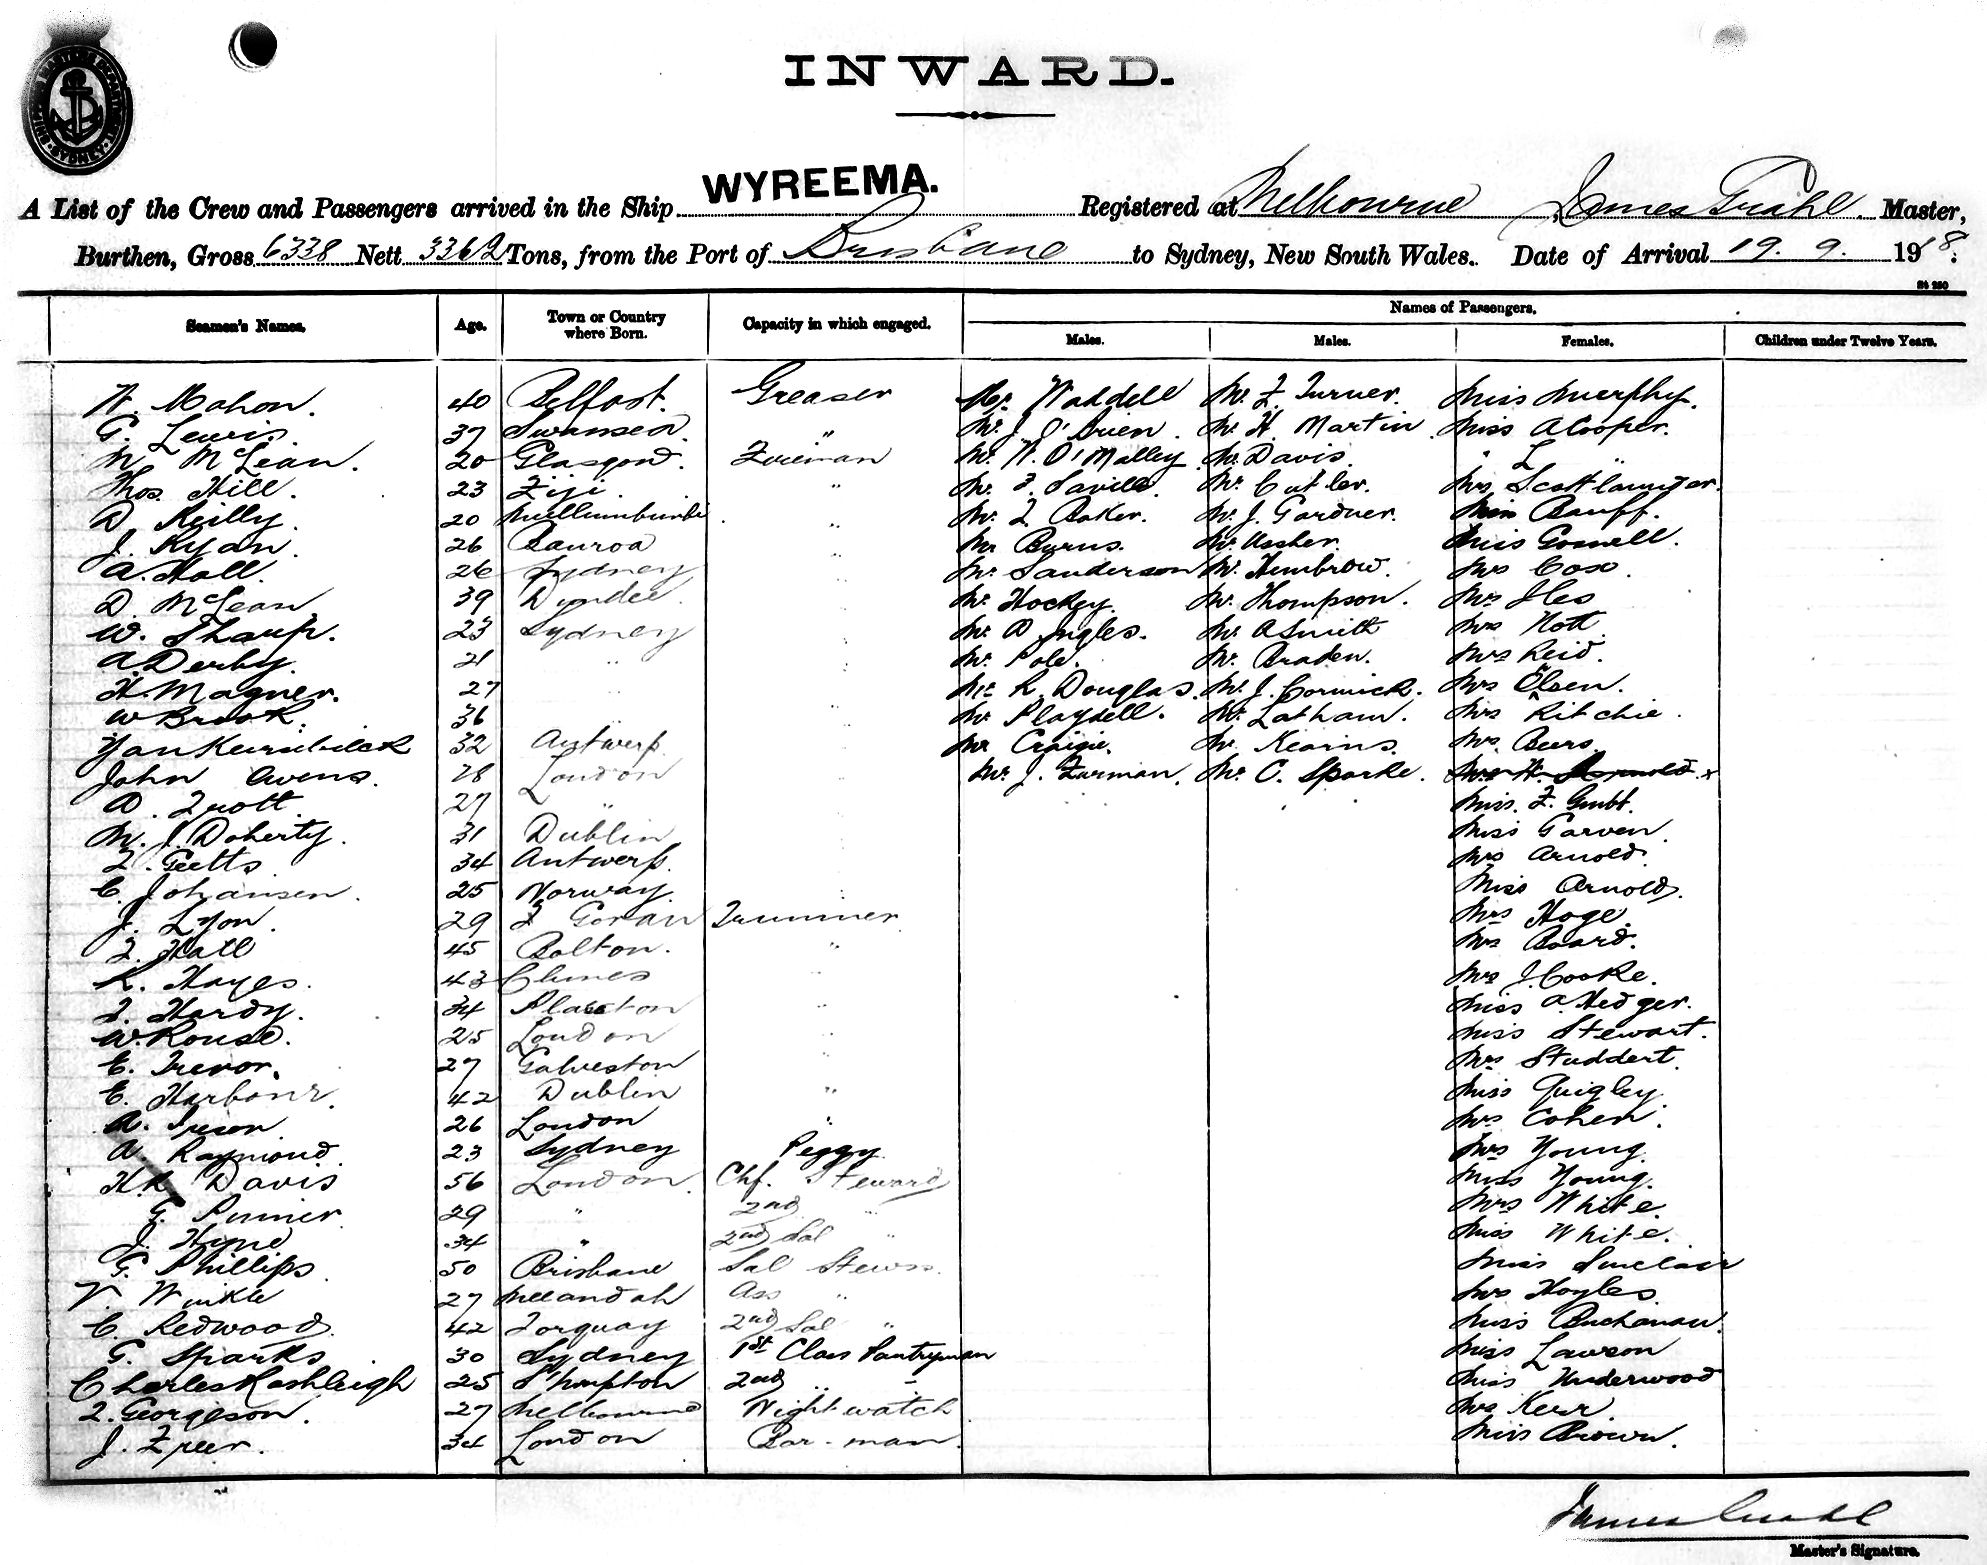 SHIPPING MASTERS DEPARTMENT SYDNEY
INWARD.
WYREEMA.
A List of the Crew and Passengers arrived in the Ship Registered at Melbourne James Master,
Burthen, Gross 6338 Nett 3362 Tons, from the Port of Brisbane to Sydney, New South Wales. Date of Arrival 19. 9. 1918.
Names of Passengers.
Seamen's Names. Age. Town or Country where Born. Capacity in which engaged. Males. Males. Females. Children under Twelve Years.
W. Mahon. 40 Belfast. Greaser Mr. Waddell Mr. F. Turner. Miss Murphy.
G. Lewis. 37 Swansea. " Mr. J. O'Brien. Mr. H. Martin. Miss A Cooper.
M McLean. 20 Glasgow. Fireman Mr. W. O'Malley Mr. Davis. " L "
Thos. Hill. 23 Fiji. " Mr. F. Saville. Mr. Cutler. Mrs
D. Reilly. 20 Mullumbimbi. " Mr. F. Baker. Mr. J. Gardner. Banff.
J. Ryan. 26 " Mr Burns. Mr. Ussher. Miss Gosnell.
A. Hall. 26 Sydney " Mr Sanderson Mr. Hembrow. Mrs Cox.
D. McLean 39 Dundee. " Mr. Hockey. Mr. Thompson. Mrs Iles
W. Tharp. 23 Sydney " Mr. A Ingles. Mr. A Smith Mrs Nott
A. Derby. 21 " " Mr. Pole. Mr. Braden. Mrs Reid.
H. Magner. 27 " " Mr. R. Douglas. Mr. J. Cormick. Mrs Olsen.
W Brook. 36 " " Mr Playdell. Mr. Latham. Mrs Ritchie.
32 Antwerp. " Mr Craigie. Mr. Kearns. Mrs. Beers.
John Owens. 28 London " Mr. J. Furman. Mr. C. Sparke. Mrs H. Arnold. x
A. Trott 27 " " Miss. F. Grubb.
M. J. Doherty. 31 Dublin " Miss Garven.
F. Geetts 34 Antwerp. " Mrs Arnold.
C. Johansen. 25 Norway. " Miss Arnold.
J. Lyon. 29 Trimmer Mrs Hoge.
F. Hall 45 Bolton. " Mrs Board.
R. Hayes. 43 Clunes " Mrs J. Cooke.
F. Hardy. 34 Plaistow " Miss A. Hedger.
W. Rouse. 25 London " Miss Stewart.
E. Trevor. 27 Galveston " Mrs Studdert.
E. Harbour. 42 Dublin " Miss Quigley.
A. 26 London " Mrs Cohen.
A. Raymond. 23 Sydney Peggy. Mrs Young.
H R Davis 56 London. Chf. Steward Miss Young.
G. 29 " 2nd " Mrs White.
J. Hynd 34 " 2nd Sal " Miss White.
G. Phillips. 50 Brisbane Sal Stewss. Miss Sinclair
V. Winkle 27 Meeandah Ass " Mrs Hoyles.
C. Redwood. 42 Torquay 2nd Sal " Miss Buchanan.
G. Sparks 30 Sydney 1st Class Pantryman Miss Lawson
Charles Rashleigh 25 S'hampton 2nd " " Miss Underwood
F. Georgeson. 27 Melbourne Nightwatch Mrs Kerr.
J. 34 London Bar-man. Miss Brown.
Master's Signature.